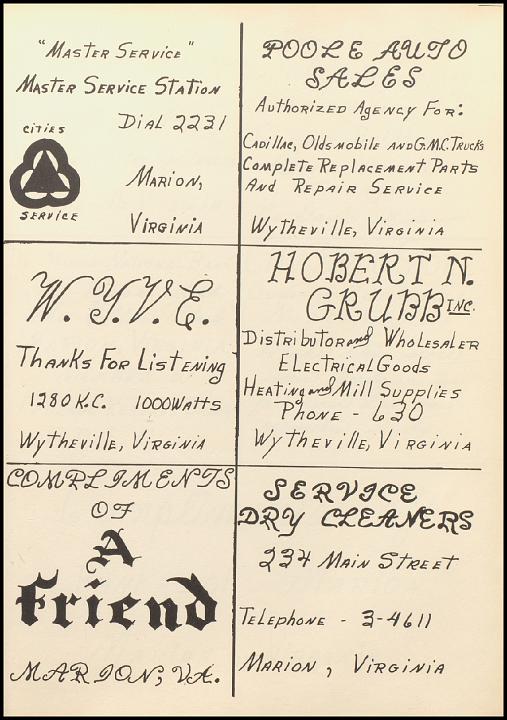 "Master Service"
Master Service Station
Dial 2231
CITIES
SERVICE
Marion,
Virginia
POOLE AUTO
SALES
Authorized Agency For:
Cadillac, Oldsmobile and G.M.C. Trucks
Complete Replacement Parts
And Repair Service
Wytheville, Virginia
W.Y.V.E.
Thanks For Listening
1280 K.C. 1000 Watts
Wytheville, Virginia
HOBERT N.
GRUBB INC.
Distributor and Wholesaler
Electrical Goods
Heating and Mill Supplies
Phone - 630
Wytheville, Virginia
COMPLIMENTS
OF
A
Friend
MARION, VA.
SERVICE
DRY CLEANERS
234 Main Street
Telephone - 3-4611
Marion, Virginia